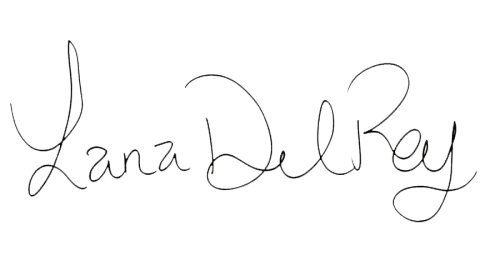 Lana Del Rey